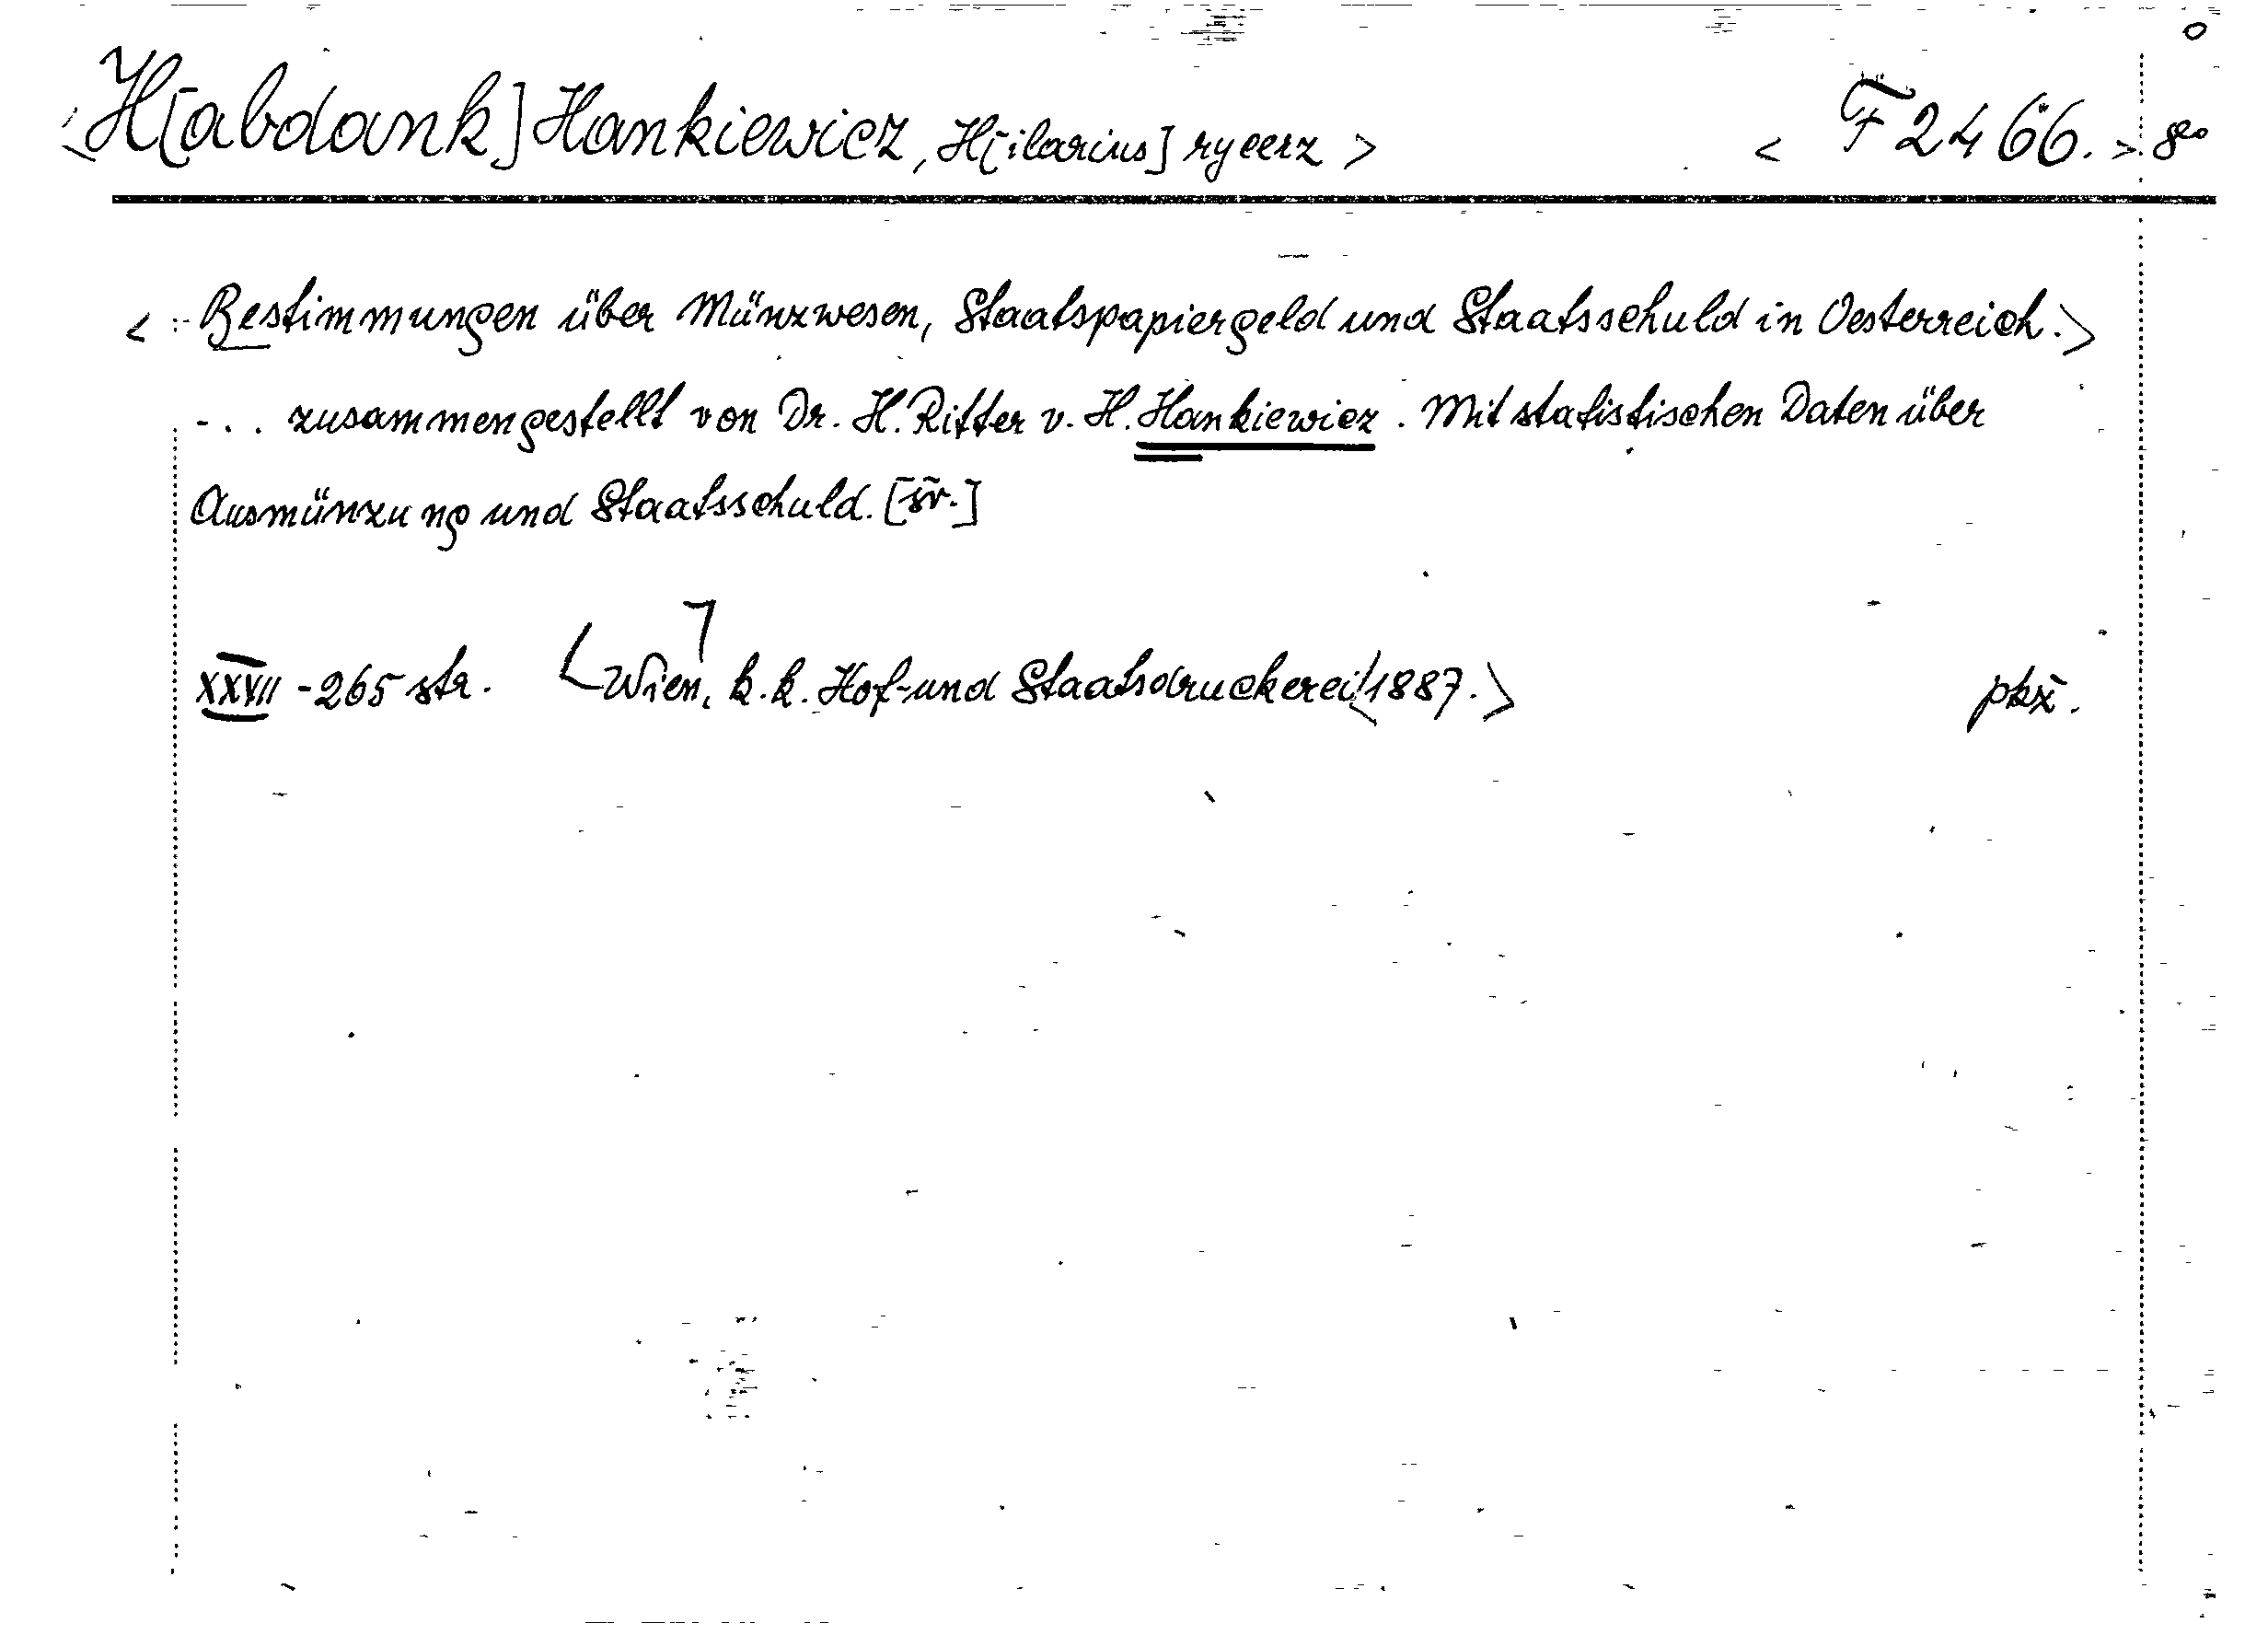 <H[abdank] Hankiewicz, H[ilarius] rycerz> <F 2466.> 8°
<Bestimmungen über Münzwesen, Staatspapiergeld und Staatsschuld in Oesterreich.>
-... zusammengestellt von Dr. H. Ritter v. H. Hankiewicz. Mit statistischen Daten über
Ausmünzung und Staatsschuld.
XXVII - 265 str. <Wien, k.k. Hof-und Staatsdruckerei, 1887.>